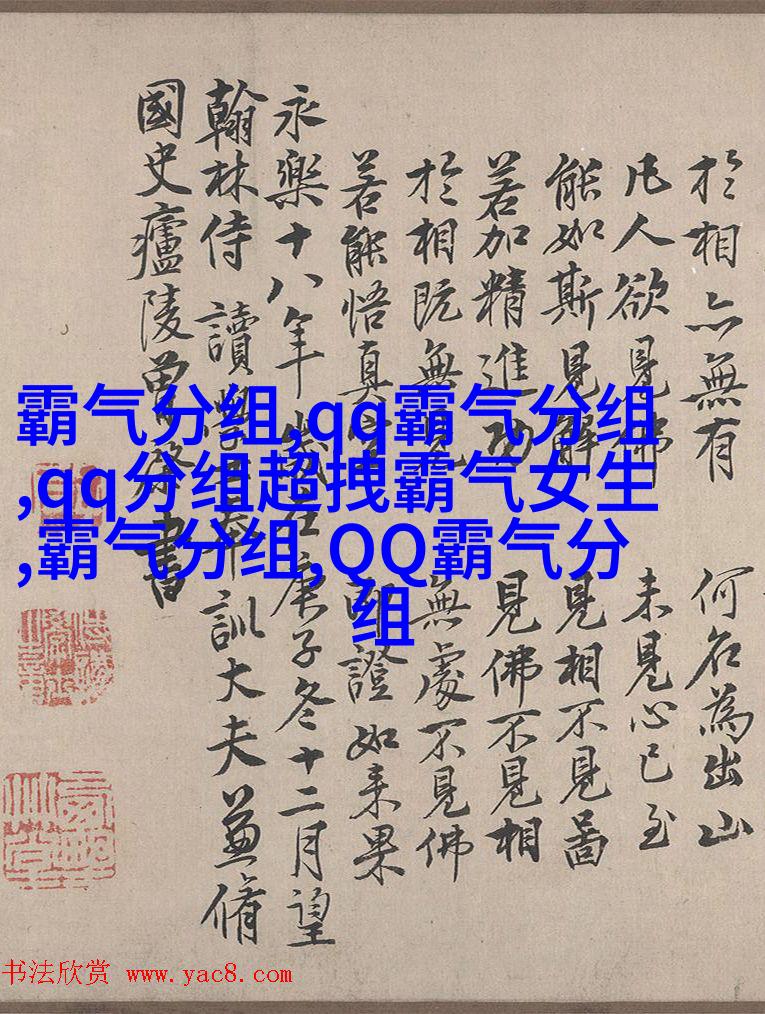 於相亦無有 何名為出山
凡人欲見佛 未見心已至
能如斯見解 見相不見啚
若加精進功 見佛不見相
於相既無見 無處不見佛
若能悟真 證如来果
永樂十八年歲在庚子冬十二月望
翰林侍讀學士奉訓大夫兼脩
國史廬陵曾棨書
霸气分组,qq霸气分组
,qq分组超拽霸气女生
,霸气分组,QQ霸气分
组
书法欣赏 www.yac8.com